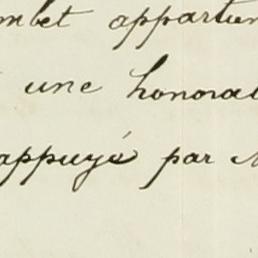 mbet appartien
une honorab
appuyé par M